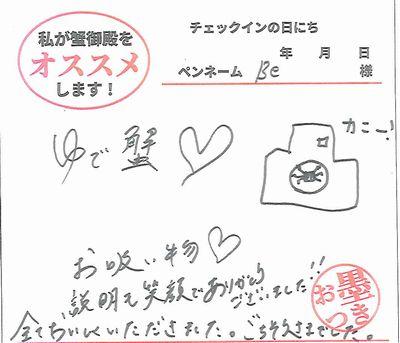 私が蟹御殿を
オススメ
します！
チェックインの日にち
年 月 日
ペンネーム Be 様
ゆで蟹♡
カニー！
お吸い物♡
説明も笑顔でありがとうございました!!
全ておいしくいただきました。ごちそうさまでした。
お墨つき